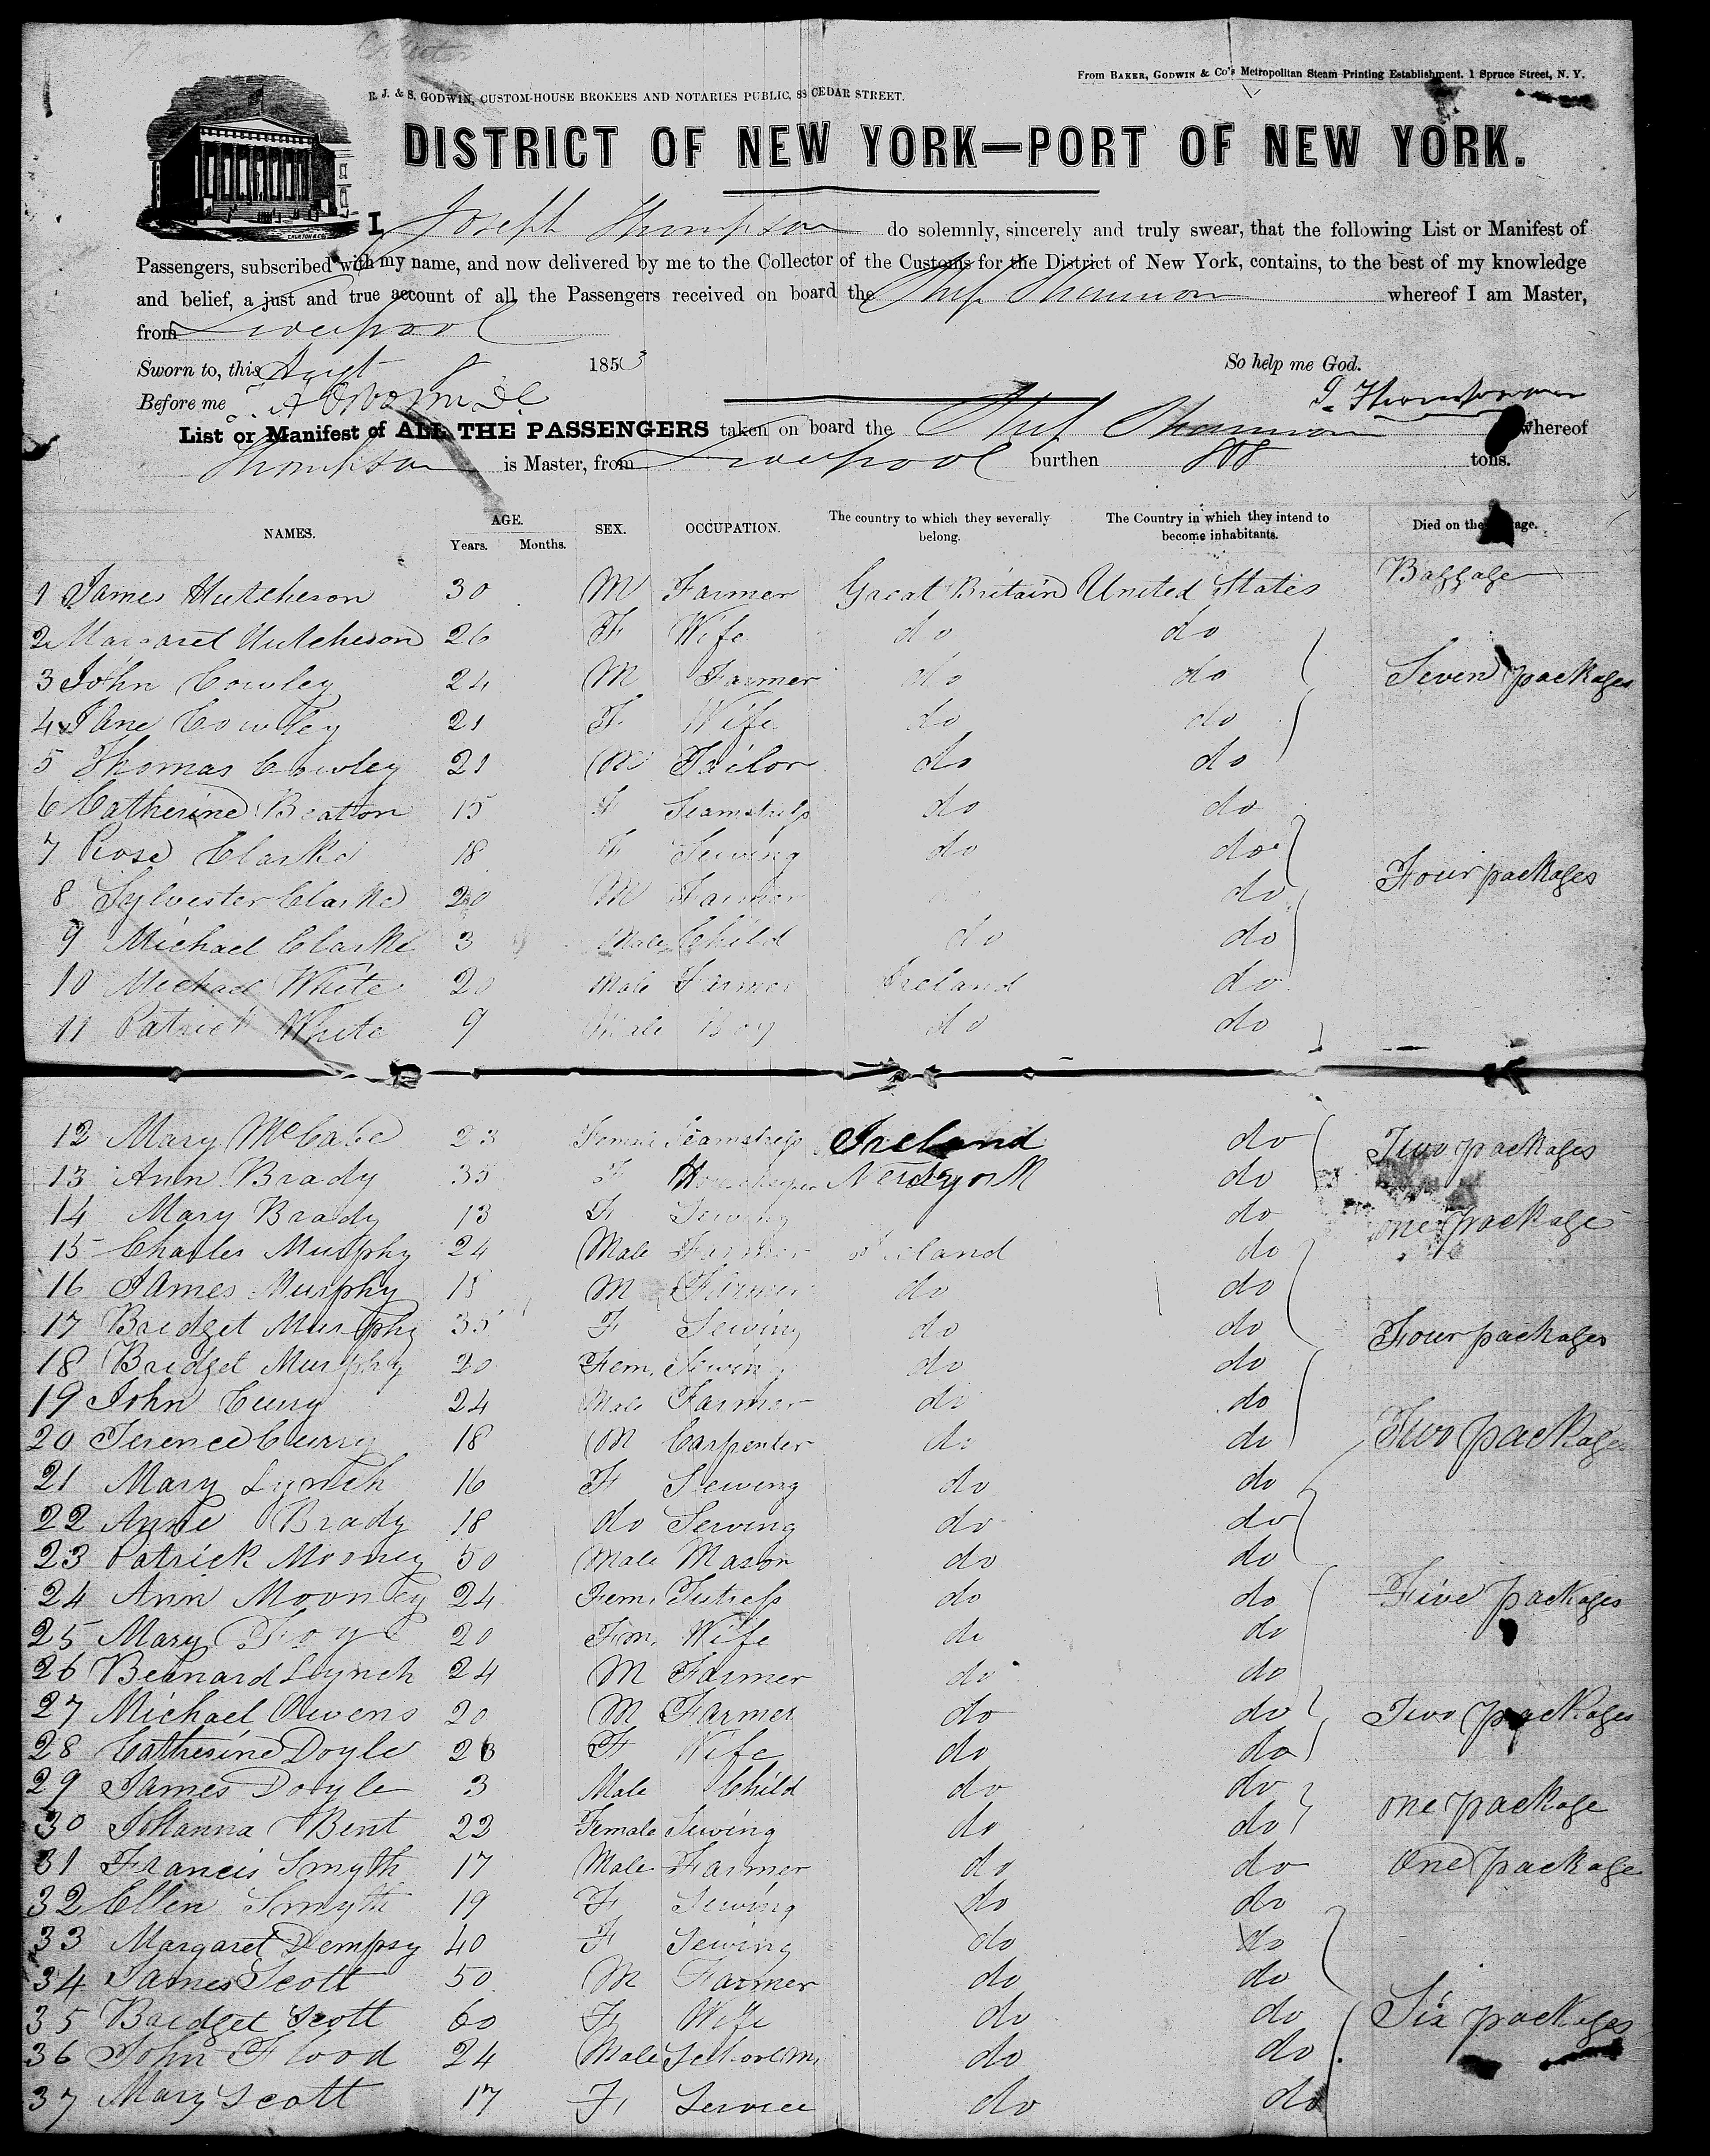 Collector
From BAKER, GODWIN & Co's Metropolitan Steam Printing Establishment, 1 Spruce Street, N. Y.
R. J. & S. GODWIN, CUSTOM-HOUSE BROKERS AND NOTARIES PUBLIC, 88 CEDAR STREET.
DISTRICT OF NEW YORK—PORT OF NEW YORK.
I, Joseph Thompson do solemnly, sincerely and truly swear, that the following List or Manifest of
Passengers, subscribed with my name, and now delivered by me to the Collector of the Customs for the District of New York, contains, to the best of my knowledge
and belief, a just and true account of all the Passengers received on board the Ship Shannon whereof I am Master,
from Liverpool
Sworn to, this Augt 8 1853 So help me God.
Before me J. Thompson
List or Manifest of ALL THE PASSENGERS taken on board the Ship Shannon whereof
Thompson is Master, from Liverpool burthen 808 tons.
NAMES. AGE. Years. Months. SEX. OCCUPATION. The country to which they severally belong. The Country in which they intend to become inhabitants. Died on the
1 James Hutcheson 30 M Farmer Great Britain United States Baggage
2 Margaret Hutcheson 26 F Wife do do
3 John Cowley 24 M Farmer do do Seven packages
4 Jane Cowley 21 F Wife do do
5 Thomas Cowley 21 M Tailor do do
6 Catherine Beatton 15 F Seamstress do do
7 Rose Clarke 18 F Sewing do do
8 Sylvester Clarke 20 M Farmer do do Four packages
9 Michael Clarke 3 Male Child do do
10 Michael White 20 Male Farmer Ireland do
11 Patrick White 9 Male Boy do do
12 Mary McCabe 23 Female Seamstress Ireland do Two packages
13 Ann Brady 35 F Housekeeper New york do
14 Mary Brady 13 F Sewing do one package
15 Charles Murphy 24 Male Farmer Ireland do
16 James Murphy 18 M Farmer do do
17 Bridget Murphy 35 F Sewing do do Four packages
18 Bridget Murphy 20 Fem. Sewing do do
19 John Curry 24 Male Farmer do do
20 Terence Curry 18 M Carpenter do do Two packages
21 Mary Lynch 16 F Sewing do do
22 Anne Brady 18 do Sewing do do
23 Patrick Mooney 50 Male Mason do do
24 Ann Mooney 24 Fem. do do Five packages
25 Mary Foye 20 Fem. Wife do do
26 Bernard Lynch 24 M Farmer do do
27 Michael Owens 20 M Farmer do do Two packages
28 Catherine Doyle 26 F Wife do do
29 James Doyle 3 Male Child do do one package
30 Johanna Bent 22 Female Sewing do do
31 Francis Smyth 17 Male Farmer do do One package
32 Ellen Smyth 19 F Sewing do do
33 Margaret Dempsy 40 F Sewing do do
34 James Scott 50 M Farmer do do
35 Bridget Scott 60 F Wife do do Six packages
36 John Flood 24 Male School M. do do
37 Mary Scott 17 F Service do do